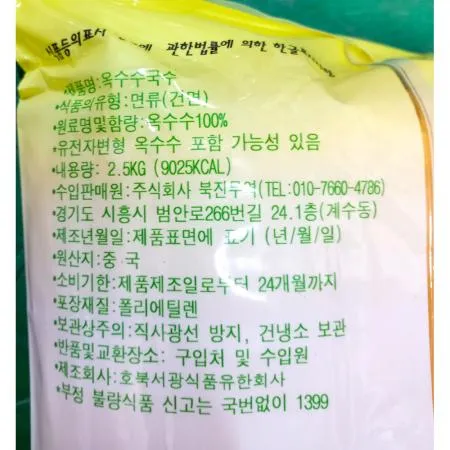 식품등의표시 관한법률에 의한 한글
제품명:옥수수국수
•식품의유형:면류(건면)
•원료명및함량:옥수수100%
•유전자변형 옥수수 포함 가능성 있음
•내용량: 2.5KG (9025KCAL)
•수입판매원:주식회사 북진무역(TEL:010-7660-4786)
•경기도 시흥시 범안로266번길 24.1층(계수동)
•제조년월일:제품표면에 표기 (년/월/일)
•원산지:중 국
•소비기한:제품제조일로부터 24개월까지
•포장재질:폴리에틸렌
•보관상주의:직사광선 방지, 건냉소 보관
•반품및교환장소: 구입처 및 수입원
•제조회사:호북서광식품유한회사
•부정 불량식품 신고는 국번없이 1399